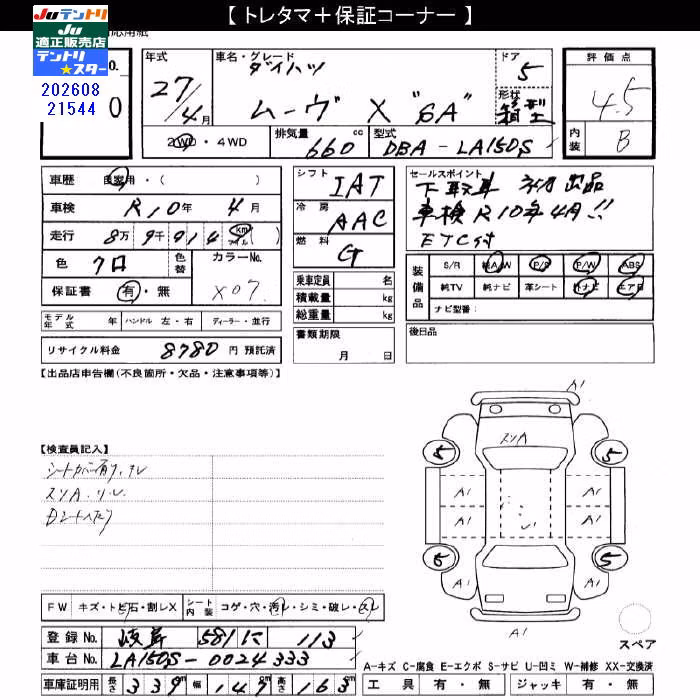 【 トレタマ＋保証コーナー 】
JUテントリ
JU
適正販売店
テントリ
★スター
応用紙
No.
202608
21544
0
年式
27/4月
車名・グレード
ダイハツ
ムーヴ X "SA"
ドア
5
形状
箱型
評価点
4.5
内装
B
2WD・4WD
排気量
660 cc
型式
DBA-LA150S
車歴 自家用・( )
車検 R10年 4月
走行 8万9千914 km マイル
色 クロ
色替
カラーNo.
X07
保証書 有・無
モデル年式 年 ハンドル 左・右 ディーラー・並行
リサイクル料金 8780 円 預託済
シフト IAT
冷房 AAC
燃料 G
乗車定員 名
積載量 kg
総重量 kg
書類期限
月 日
セールスポイント
下取車 初出品
車検R10年4月!!
ETC付
装備品
S/R 純A/W P/S P/W ABS
純TV 純ナビ 革シート 外ナビ エアB
ナビ型番:
後日品
【出品店申告欄(不良箇所・欠品・注意事項等)】
【検査員記入】
スリA
A1
A1
A1
A1
A1
A1
A1
A1
5
5
6
5
スペア
FW キズ・トビ石・割レX シート内装 コゲ・穴・汚レ・シミ・破レ・スレ
登録No. 岐阜 581 に 113
車台No. LA150S-0024333
車庫証明用 長さ 339m 幅 147m 高さ 163m
A-キズ C-腐食 E-エクボ S-サビ U-凹ミ W-補修 XX-交換済
工具 有・無 ジャッキ 有・無